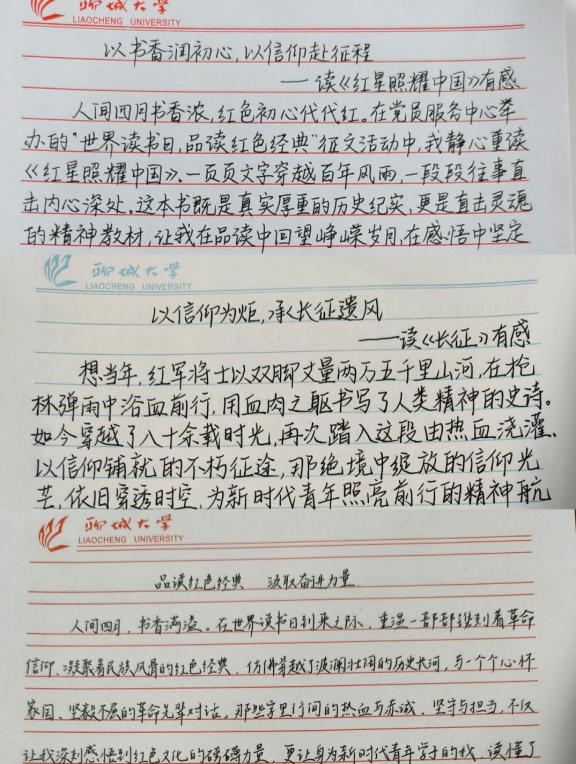 聊城大学
LIAOCHENG UNIVERSITY
以书香润初心,以信仰赴征程
——读《红星照耀中国》有感
人间四月书香浓,红色初心代代红。在党员服务中心举
办的"世界读书日,品读红色经典"征文活动中,我静心重读
《红星照耀中国》。一页页文字穿越百年风雨,一段段往事直
击内心深处。这本书既是真实厚重的历史纪实,更是直击灵魂
的精神教材,让我在品读中回望峥嵘岁月,在感悟中坚定
聊城大学
LIAOCHENG UNIVERSITY
以信仰为炬,承长征遗风
——读《长征》有感
想当年,红军将士以双脚丈量两万五千里山河,在枪
林弹雨中浴血前行,用血肉之躯书写了人类精神的史诗。
如今穿越了八十余载时光,再次踏入这段由热血浇灌、
以信仰铺就的不朽征途,那绝境中绽放的信仰光
芒,依旧穿透时空,为新时代青年照亮前行的精神航
聊城大学
LIAOCHENG UNIVERSITY
品读红色经典 汲取奋进力量
人间四月,书香满溢。在世界读书日到来之际,重温一部部镌刻着革命
信仰、凝聚着民族风骨的红色经典,仿佛穿越了波澜壮阔的历史长河,与一个个心怀
家国、坚毅不屈的革命先辈对话。那些字里行间的热血与赤诚、坚守与担当,不仅
让我深刻感悟到红色文化的磅礴力量,更让身为新时代青年学子的我,读懂了